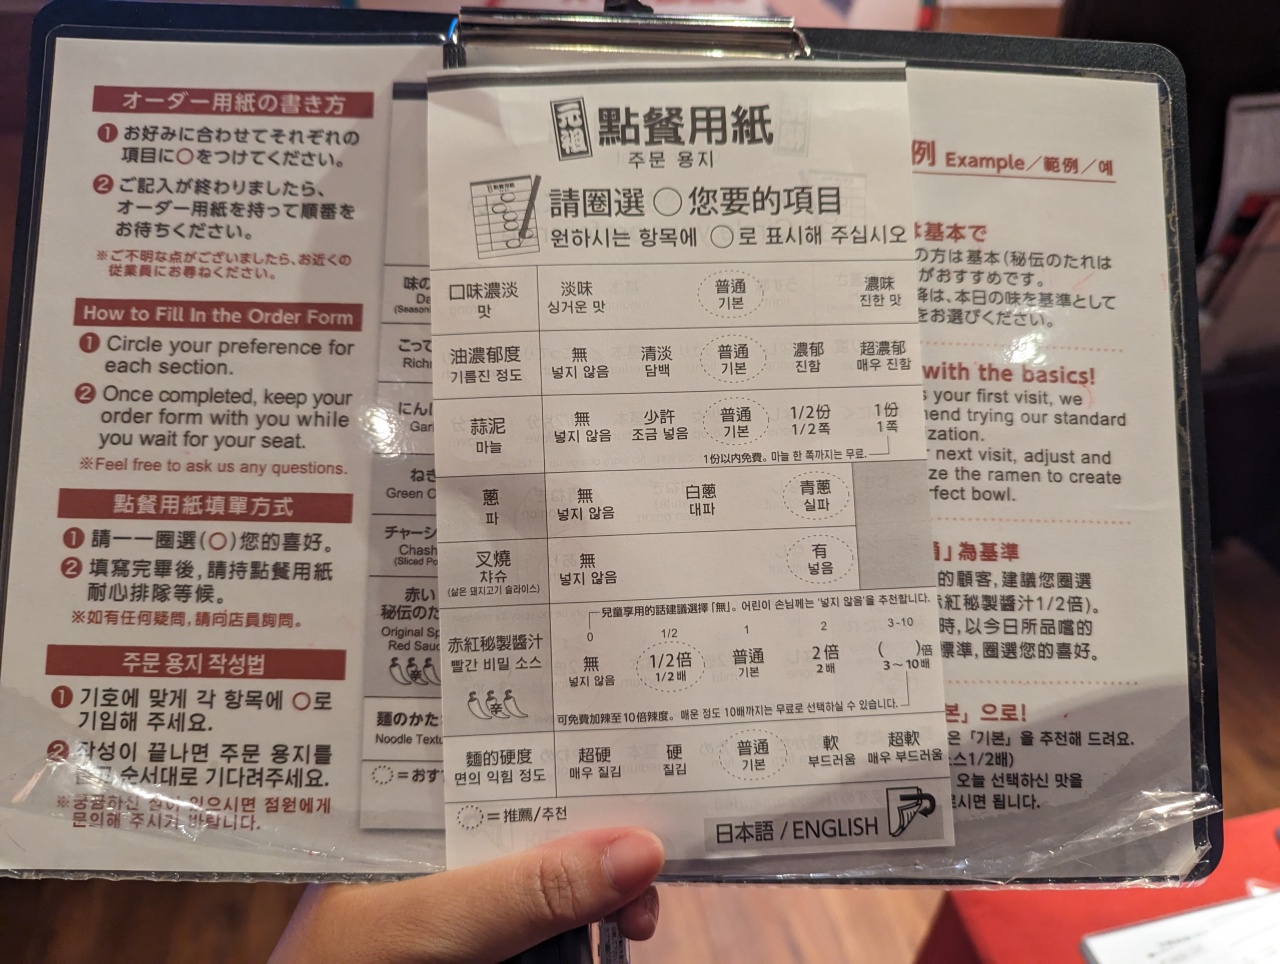 オーダー用紙の書き方
❶ お好みに合わせてそれぞれの
項目に○をつけてください。
❷ ご記入が終わりましたら、
オーダー用紙を持って順番を
お待ちください。
※ご不明な点がございましたら、お近くの
従業員にお尋ねください。
How to Fill In the Order Form
❶ Circle your preference for
each section.
❷ Once completed, keep your
order form with you while
you wait for your seat.
※Feel free to ask us any questions.
點餐用紙填單方式
❶ 請一一圈選(○)您的喜好。
❷ 填寫完畢後,請持點餐用紙
耐心排隊等候。
※如有任何疑問,請向店員詢問。
주문 용지 작성법
❶ 기호에 맞게 각 항목에 ○로
기입해 주세요.
❷ 작성이 끝나면 주문 용지를
순서대로 기다려주세요.
※궁금하신 점이 있으시면 점원에게
문의해 주시기 바랍니다.
味の
Da
(Season
こって
Richn
にんに
Garl
ねき
Green O
チャーシ
Chash
(Sliced Po
赤い
秘伝のた
Original Sp
Red Sauc
麺のかた
Noodle Textu
=おす
元祖
點餐用紙
주문 용지
請圈選 ○ 您要的項目
원하시는 항목에 ○로 표시해 주십시오
口味濃淡 淡味 普通 濃味
맛 싱거운 맛 기본 진한 맛
油濃郁度 無 清淡 普通 濃郁 超濃郁
기름진 정도 넣지 않음 담백 기본 진함 매우 진함
蒜泥 無 少許 普通 1/2份 1份
마늘 넣지 않음 조금 넣음 기본 1/2쪽 1쪽
1份以內免費。마늘 한 쪽까지는 무료.
蔥 無 白蔥 青蔥
파 넣지 않음 대파 실파
叉燒 無 有
차슈 넣지 않음 넣음
(삶은 돼지고기 슬라이스)
兒童享用的話建議選擇「無」。어린이 손님께는 '넣지 않음'을 추천합니다.
0 1/2 1 2 3-10
赤紅秘製醬汁 無 1/2倍 普通 2倍 ( )倍
빨간 비밀 소스 넣지 않음 1/2배 기본 2배 3~10배
辛
可免費加辣至10倍辣度。매운 정도 10배까지는 무료로 선택하실 수 있습니다.
麵的硬度 超硬 硬 普通 軟 超軟
면의 익힘 정도 매우 질김 질김 기본 부드러움 매우 부드러움
=推薦/추천
日本語 / ENGLISH
例 Example/範例/예
は基本で
の方は基本(秘伝のたれは
がおすすめです。
降は、本日の味を基準として
をお選びください。
with the basics!
s your first visit, we
end trying our standard
zation.
r next visit, adjust and
ze the ramen to create
rfect bowl.
」為基準
的顧客,建議您圈選
紅秘製醬汁1/2倍)。
時,以今日所品嚐的
標準,圈選您的喜好。
본」으로!
은「기본」을 추천해 드려요.
스1/2배)
오늘 선택하신 맛을
로시면 됩니다.